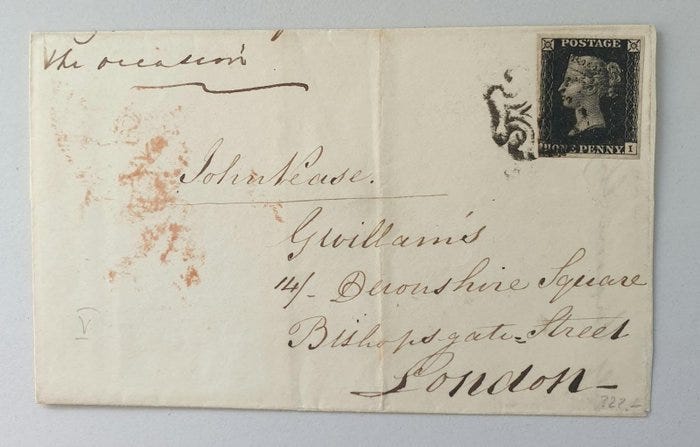 the occasion
POSTAGE
ONE PENNY.
I
John Pease.
Gwillam's
14/- Devonshire Square
Bishopsgate=Street
London-
V